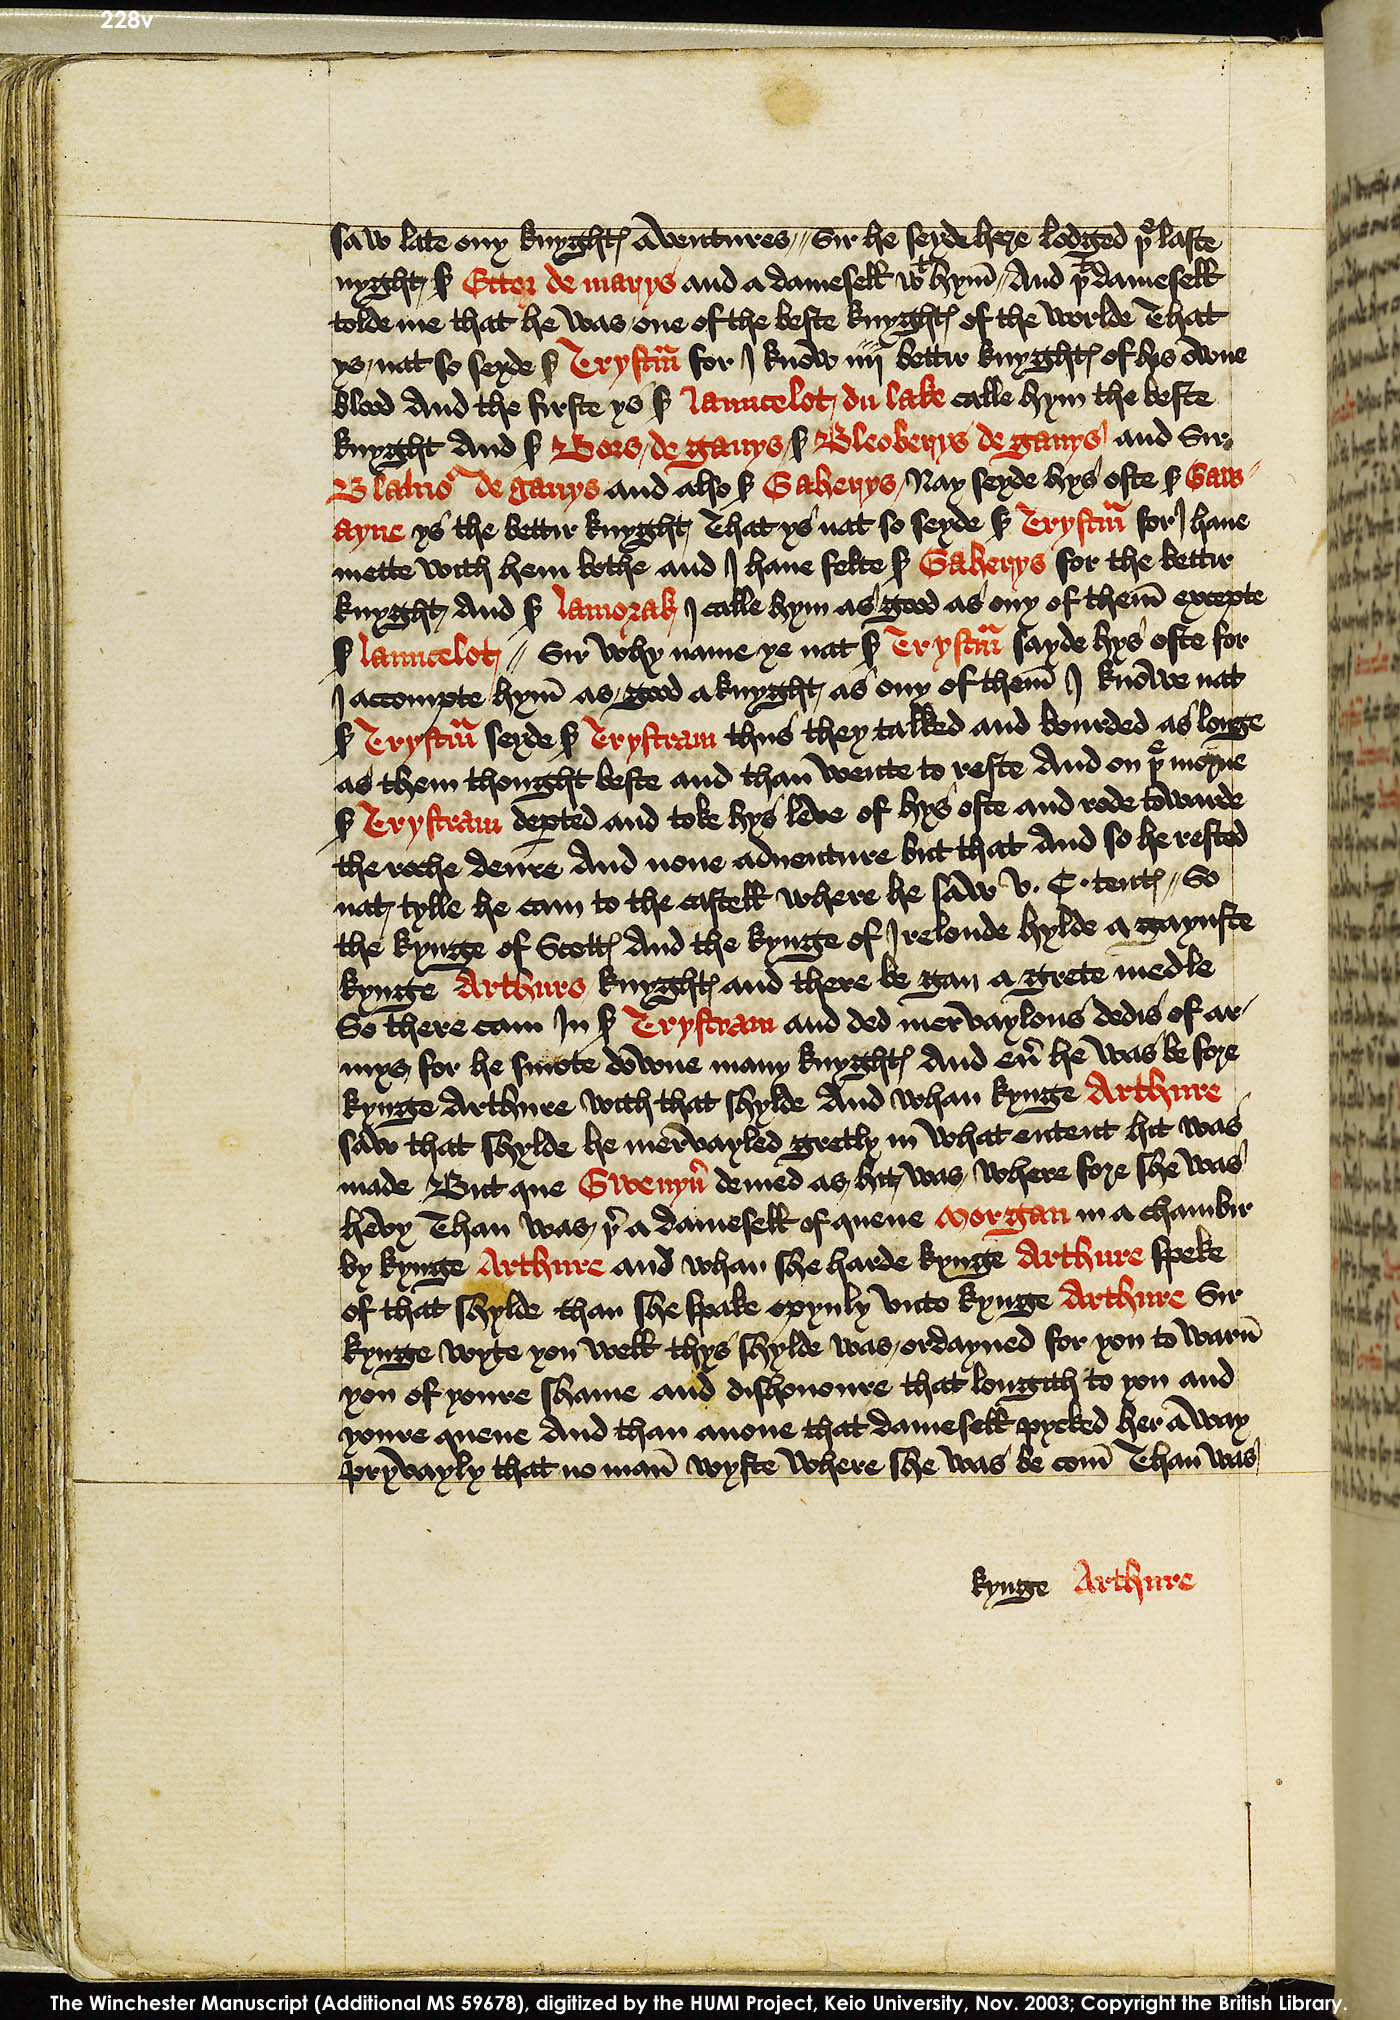 228v
saw late ony knyghtꝭ aventures // Sir he seyde here lodged þe laste
nyght / ẜ Ector de marys and a damesell wt hym̄ // And þt damesell
tolde me that he was one of the beste knyghtꝭ of the worlde That
ys / nat so seyde ẜ Trystrā for I know iiij bettir knyghtꝭ of hys owne
blood And the firste ys ẜ launcelot / du lake calle hym the beste
knyght And ẜ Bors / de ganys / ẜ Bleoberys de ganys and Sir
Blamor de ganys and also ẜ Gaherys / Nay seyde hys oste ẜ Gaw//
ayne ys the bettir knyght / That ys nat so seyde ẜ Trystrā for I haue
mette with hem bothe and I haue felte ẜ Gaherys for the bettir
knyght / And ẜ lamorak I calle hym as good as ony of them̄ excepte
ẜ launcelot // Sir why name ye nat ẜ Trystrā sayde hys oste for
I accompte hym̄ as / good a knyght / as ony of them̄ I knowe nat
ẜ Trystrā seyde ẜ Trystram thus they talked and bourded as longe
as them thought beste and than wente to reste And on þe morne
ẜ Trystram depted and toke hys leve of hys oste and rode towarde
the roche deure And none aduenture but that And so he rested
nat / tylle he cam to the castell where he saw v. C. tentꝭ // So
the kynge of Scottꝭ And the kynge of Irelonde hylde a gaynste
kynge Arthurs knyghtꝭ and there be gan a grete medle
So there cam In ẜ Trystram and ded mervaylous dedis of ar/
mys for he smote downe many knyghtꝭ And eū he was be fore
kynge Arthure with that shylde And whan kynge Arthure
saw that shylde he mervayled gretly in what entent hit was
made But que Gwenyū demed as / hit / was / where fore she was
hevy Than was / þr a damesell of quene Morgan in a chambir
by kynge Arthure and whan she harde kynge Arthure speke
of that shylde than she spake opynly vnto kynge Arthure Sir
kynge wyte you well thys shylde was / ordayned for you to warn̄
you of youre shame and dishonoure that longith to you and
youre quene And than anone that damesell pycked her away
pryvayly that no man̄ wyste where she was be com̄ Than was
kynge Arthure
The Winchester Manuscript (Additional MS 59678), digitized by the HUMI Project, Keio University, Nov. 2003; Copyright the British Library.